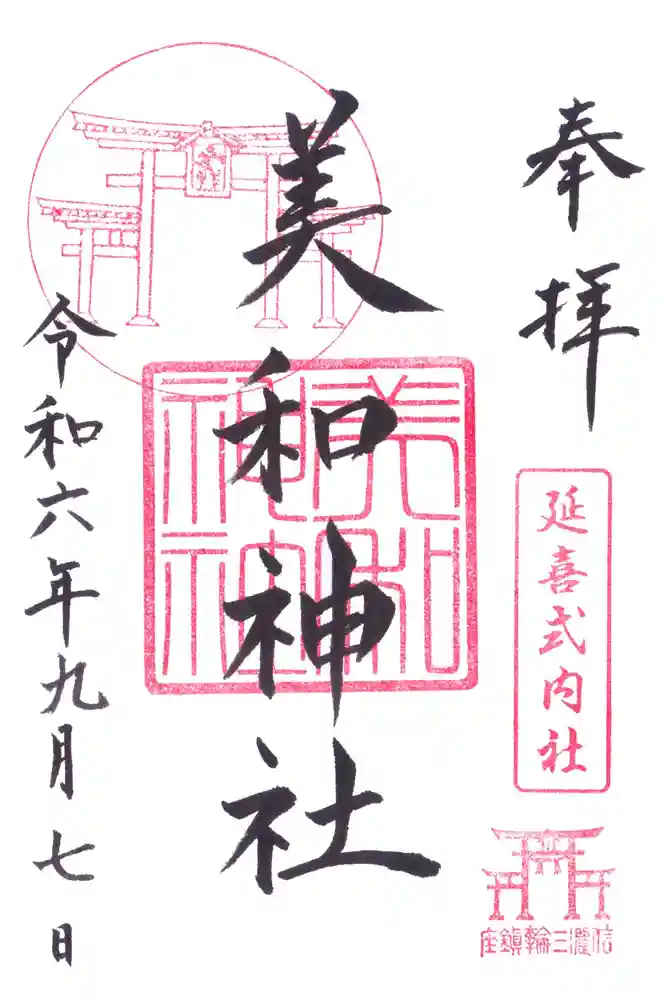 奉拝
延喜式内社
信濃三輪鎮座
美和神社
美和神社
令和六年九月七日